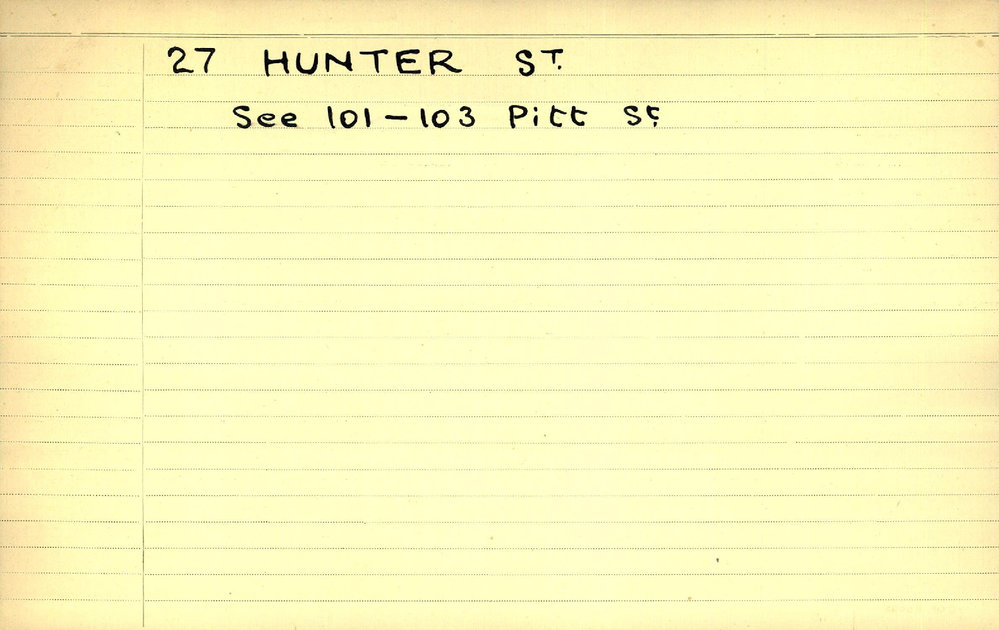 27 HUNTER ST.
See 101-103 Pitt St.